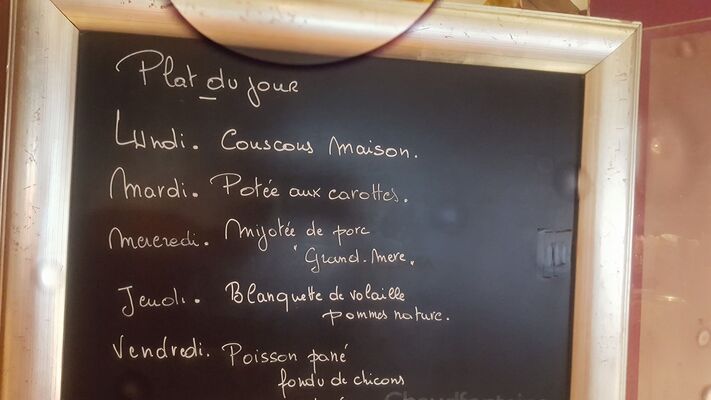 Plat du jour
Lundi. Couscous maison.
Mardi. Potée aux carottes.
Mercredi. Mijotée de porc
"Grand-mère"
Jeudi. Blanquette de volaille
pommes nature.
Vendredi. Poisson pané
fondu de chicons